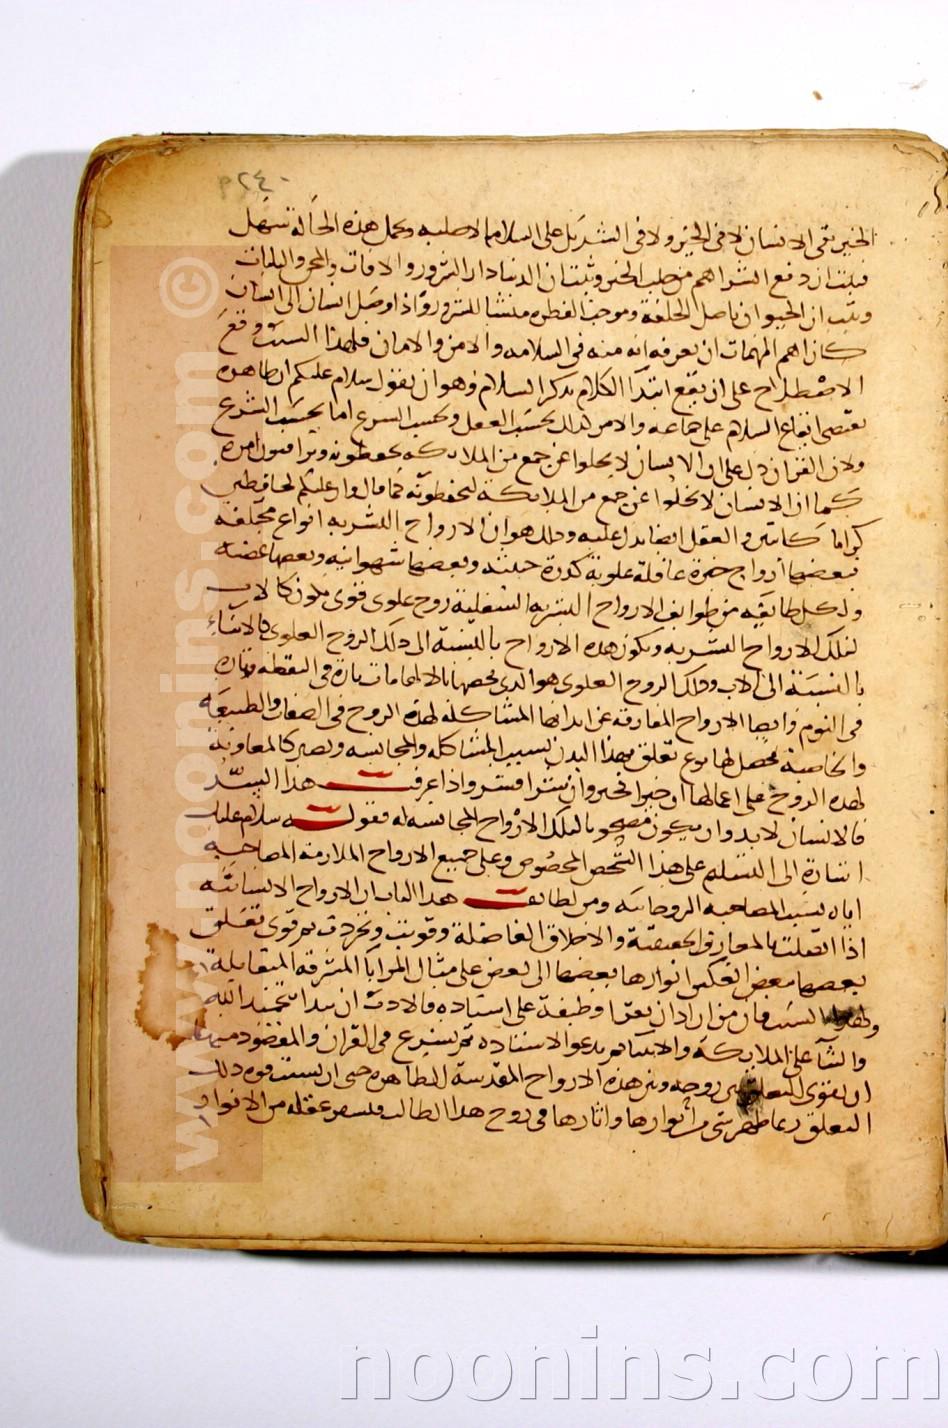 ٢٤٠
الخير بقى الانسان لا فى الخير ولا فى الشر بل على السلامة الاصلية وتحمل هذه الحالة سهل
فثبت ان دفع الشر اهم من جلب الخير وثبت ان الدنيا دار الشرور والافات والمحن والبليات
وثبت ان الحيوان باصل الخلقة وموجب الفطرة منشا للشرور واذا وصل انسان الى انسان
كان اهم المهمات ان يعرفه انه منه فى السلامه والامن والامان فلهذا السبب وقع
الاصطلاح على ان يقع ابتدا الكلام بذكر السلام وهو ان يقول سلام عليكم
يقتضى ايقاع السلام على جماعه والامر كذلك بحسب العقل وبحسب الشرع اما بحسب الشرع
ولان القران دل على ان الانسان لا يخلوا عن جمع من الملايكه يحفظونه ويراقبون امره
كما ان الانسان لا يخلوا عن جمع من الملايكة كما قال وان عليكم لحافظين
كراما كاتبين والعقل ايضا يدل عليه وذلك هو ان الارواح البشريه انواع مختلفه
فبعضها ارواح خيرة عاقلة علوية كدرة خبيثه وبعضها شهوانيه وبعضها غضبيه
ولكل طايفه من طوايف الارواح البشريه السفلية روح علوى قوى يكون كالاب
لتلك الارواح البشريه وتكون هذه الارواح بالنسبة الى ذلك الروح العلوى كالابناء
بالنسبة الى الاب وذلك الروح العلوى هو الذى يخصها بالالهامات تارة فى اليقظه وتاره
فى النوم وايضا الارواح المفارقه عن ابدانها المشاكله لهذه الروح فى الصفات والطبيعه
والخاصية يحصل لها نوع تعلق بهذا البدن بسبب المشاكله والمجانسه وتصير كالمعاونة
لهذه الروح على اعمالها ان خيرا فخير وان شرا فشر واذا عرفت هذا السر
فالانسان لا بد وان يكون مصحوبا بتلك الارواح المجانسه له فقوله سلام عليك
اشارة الى التسليم على هذا الشخص المخصوص وعلى جميع الارواح الملازمه المصاحبه
اياه بسبب المصاحبه الروحانيه ومن لطايف هذا الباب ان الارواح الانسانيه
اذا اتصلت بالمعارف الحقيقية والاخلاق الفاضلة وقويت وتجردت ثم قوى تعلق
بعضها ببعض انعكس انوارها بعضها الى بعض على مثال المرايا المشرقه المتقابلة
ولهذا السبب فان من اراد ان يقرا وظيفة على استاده فالادب ان يبدا بتحميد الله
والثناء على الملايكة والانبيا ثم يدعو الاستاده ثم يشرع فى القران والمقصود منها
ان يقوى التعلق بين روحه وبين هذه الارواح المقدسة الطاهره حتى ان بسبب قوة ذلك
التعلق ربما ظهر شى من انوارها واثارها فى روح هذا الطالب عقله من الانوار
www.noonins.com ©
noonins.com